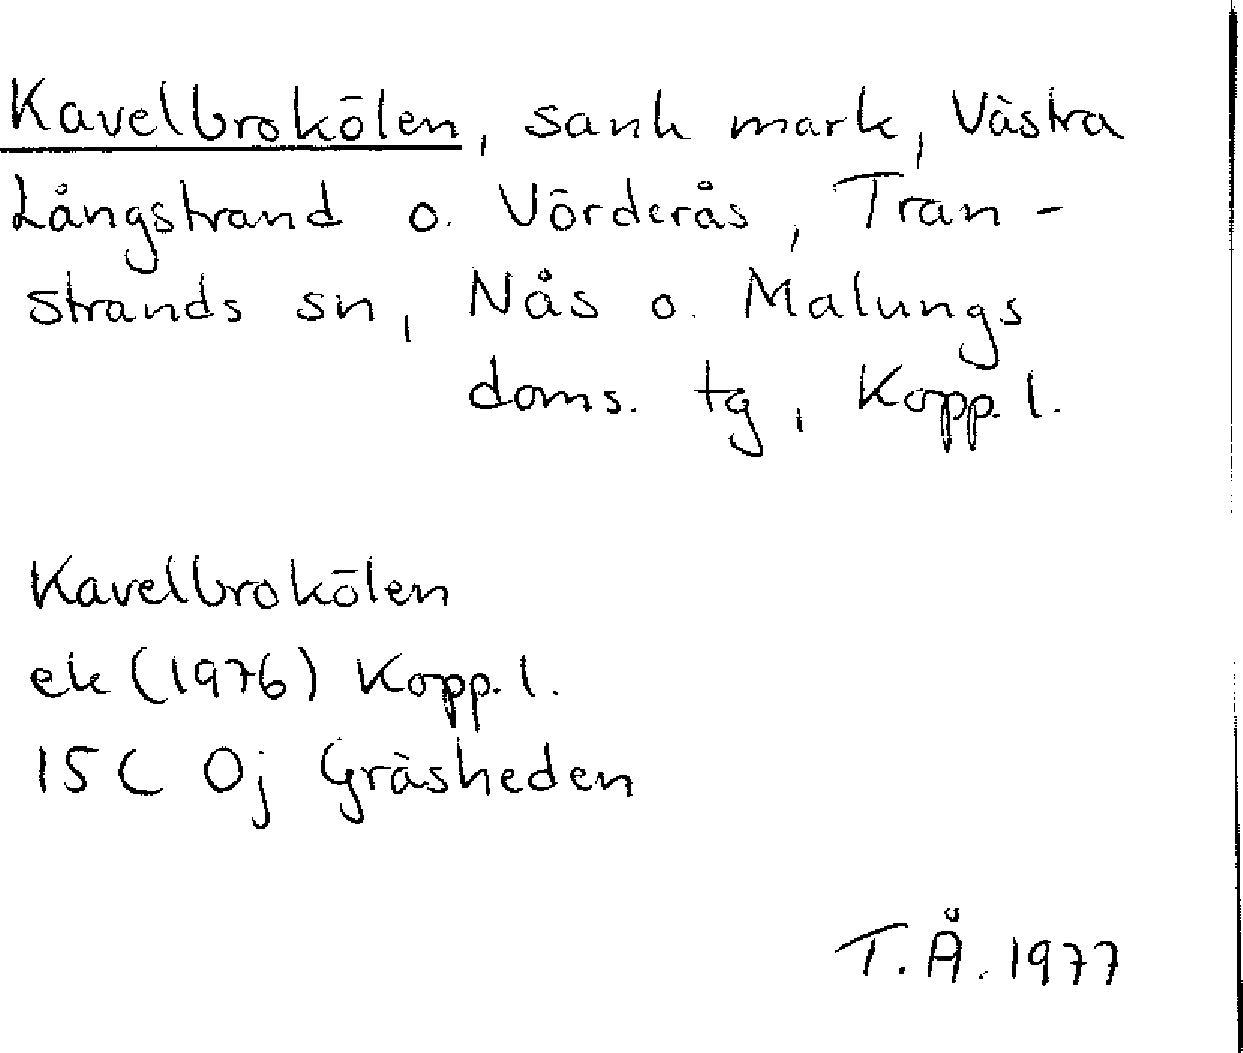 Kavelbrokölen, sank mark, Västra
Långstrand o. Vörderås, Tran-
strands sn, Nås o. Malungs
doms. tg, Kopp. l.
Kavelbrokölen
ek (1976) Kopp. l.
15 C 0j Gräsheden
T. Å. 1977